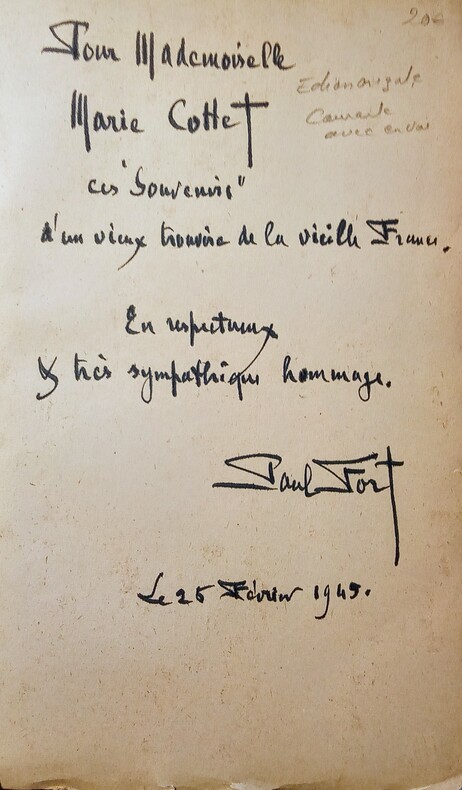 Pour Mademoiselle
Marie Cottet
ces "Souvenirs"
d'un vieux trouvère de la vieille France.
En respectueux
& très sympathique hommage.
Paul Fort
Le 25 Février 1945.
Edition originale
avec envoi